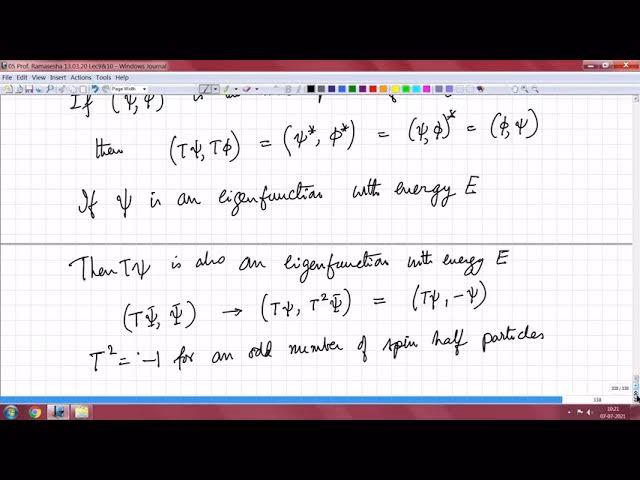 05 Prof. Ramasesha 13.03.20 Lec9&10 - Windows Journal
File Edit View Insert Actions Tools Help
Page Width
If (ψ, ψ) is
then (Tψ, Tϕ) = (ψ*, ϕ*) = (ψ, ϕ)* = (ϕ, ψ)
If ψ is an eigenfunction with energy E
Then Tψ is also an eigenfunction with energy E
(TΨ, Ψ) → (Tψ, T²Ψ) = (Tψ, -Ψ)
T² = -1 for an odd number of spin half particles
338 / 338
338
10:21
07-07-2021